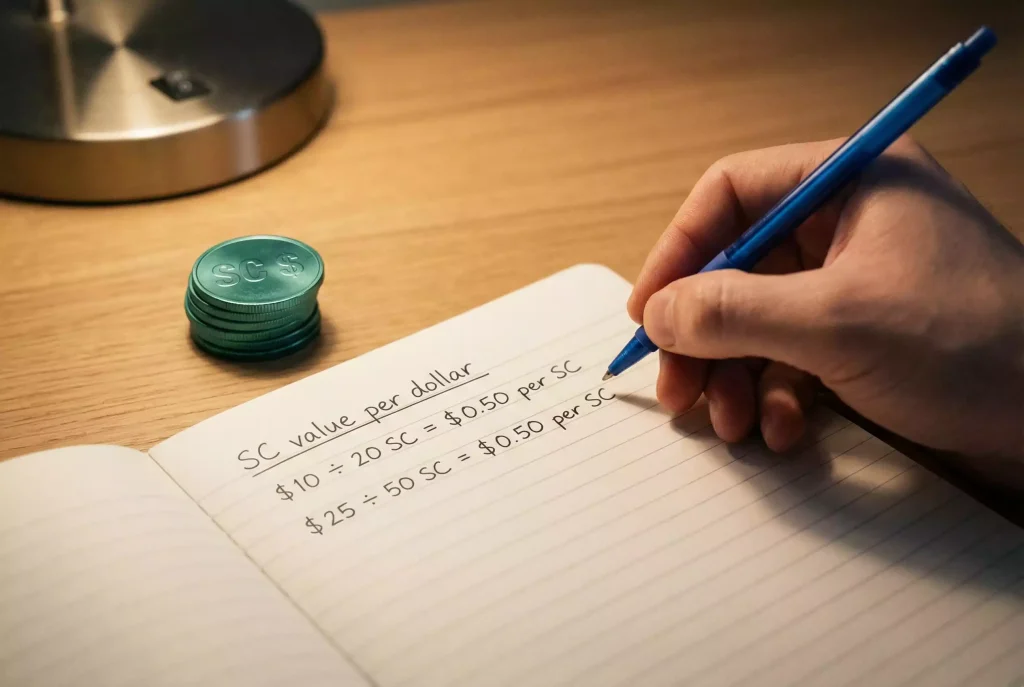 SC $
SC value per dollar
$10 ÷ 20 SC = $0.50 per SC
$25 ÷ 50 SC = $0.50 per SC